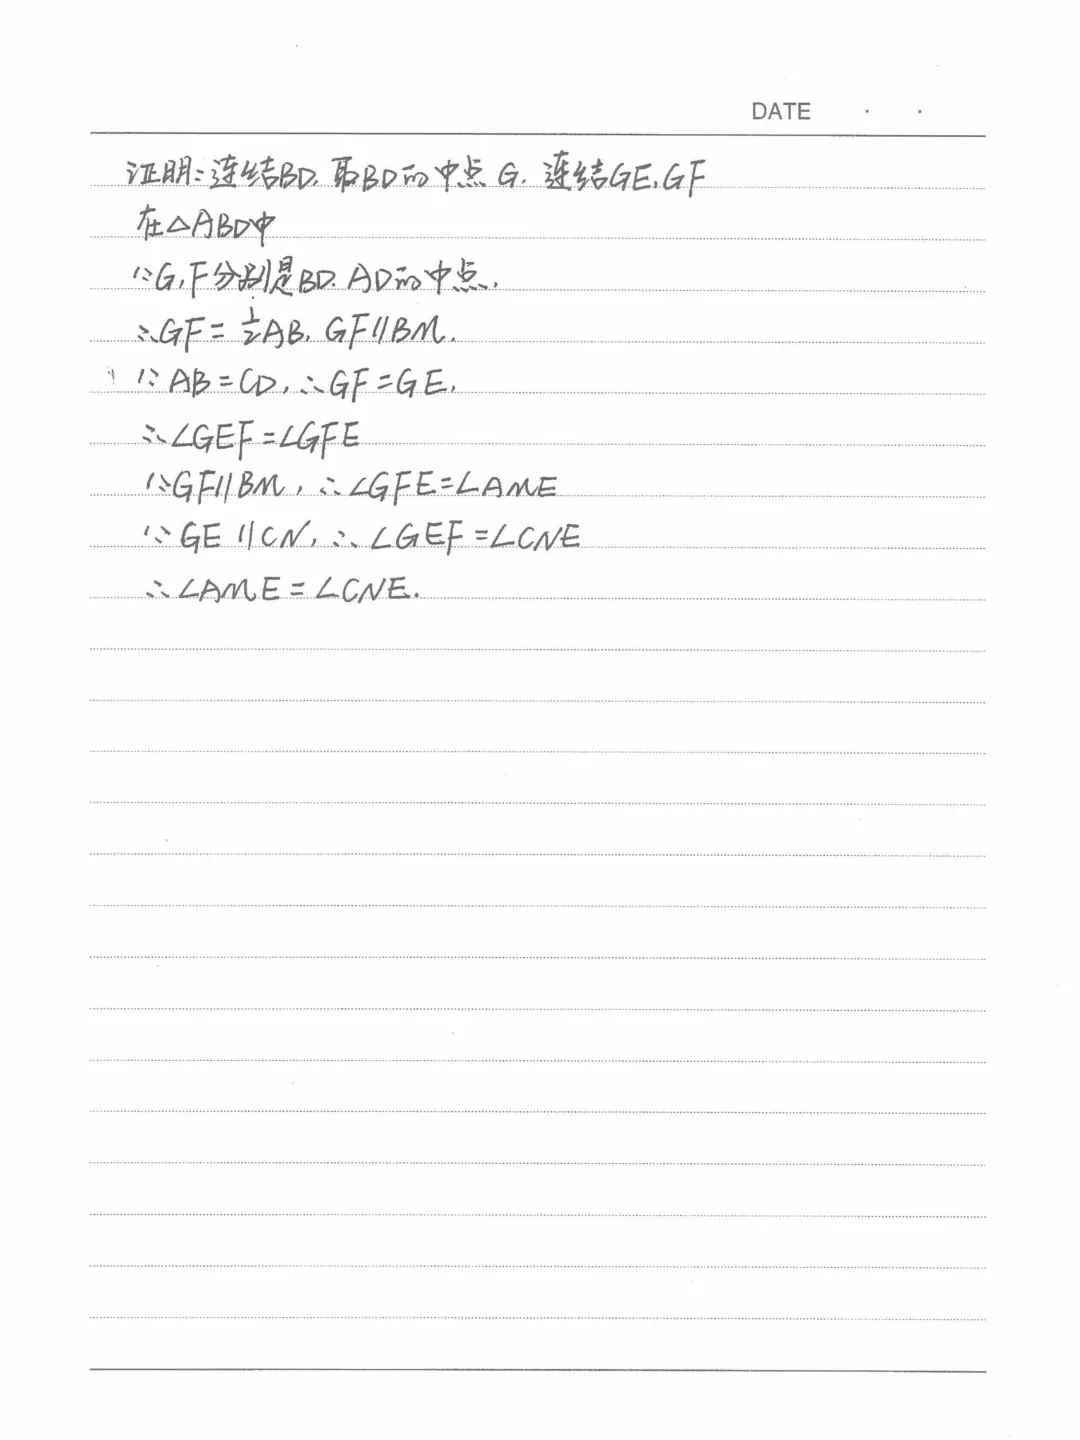 DATE · ·
证明:连结BD,取BD的中点G,连结GE,GF
在△ABD中
∵G,F分别是BD.AD的中点,
∴GF=½AB,GF∥BM.
∵AB=CD,∴GF=GE,
∴∠GEF=∠GFE
∵GF∥BM,∴∠GFE=∠AME
∵GE∥CN,∴∠GEF=∠CNE
∴∠AME=∠CNE.